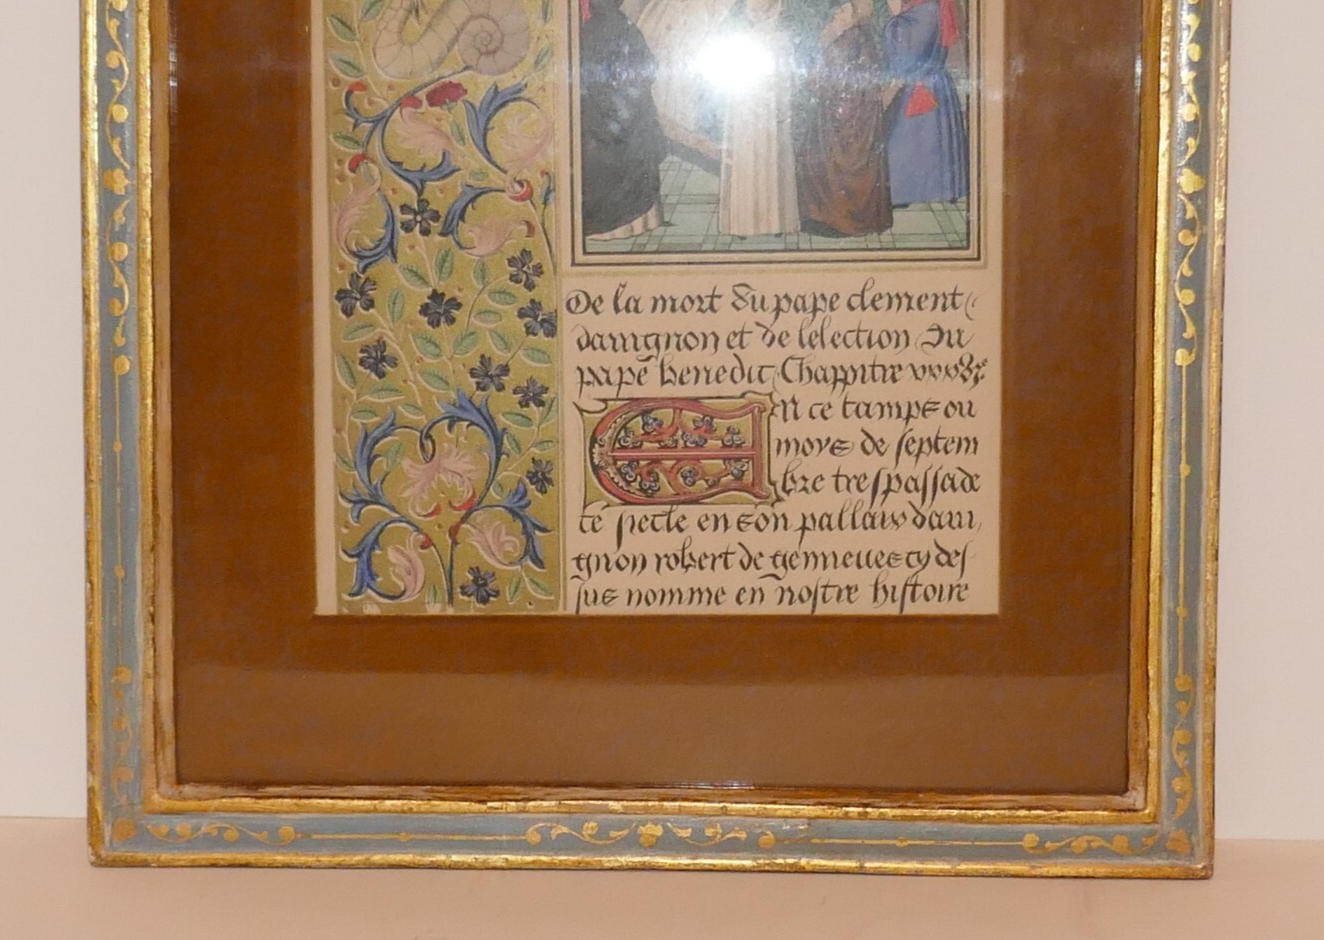 De la mort du pape clement
dauignon et de lelection du
pape benedic Chappitre
En ce tamps ou
moys de septem
bre trespassa de
ce siecle en son pallais daui,
gnon robert de genneues cy des
sus nomme en nostre histoire